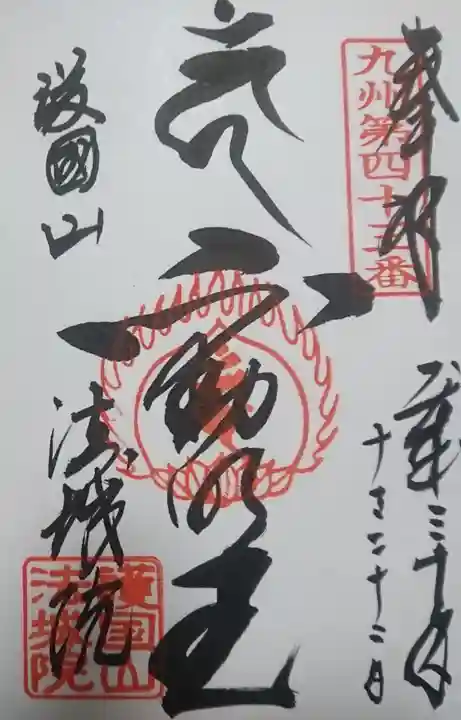 奉拝
九州第四十三番
平成三十年
二十二日
不動明王
護國山
法城院
護国山
法城院